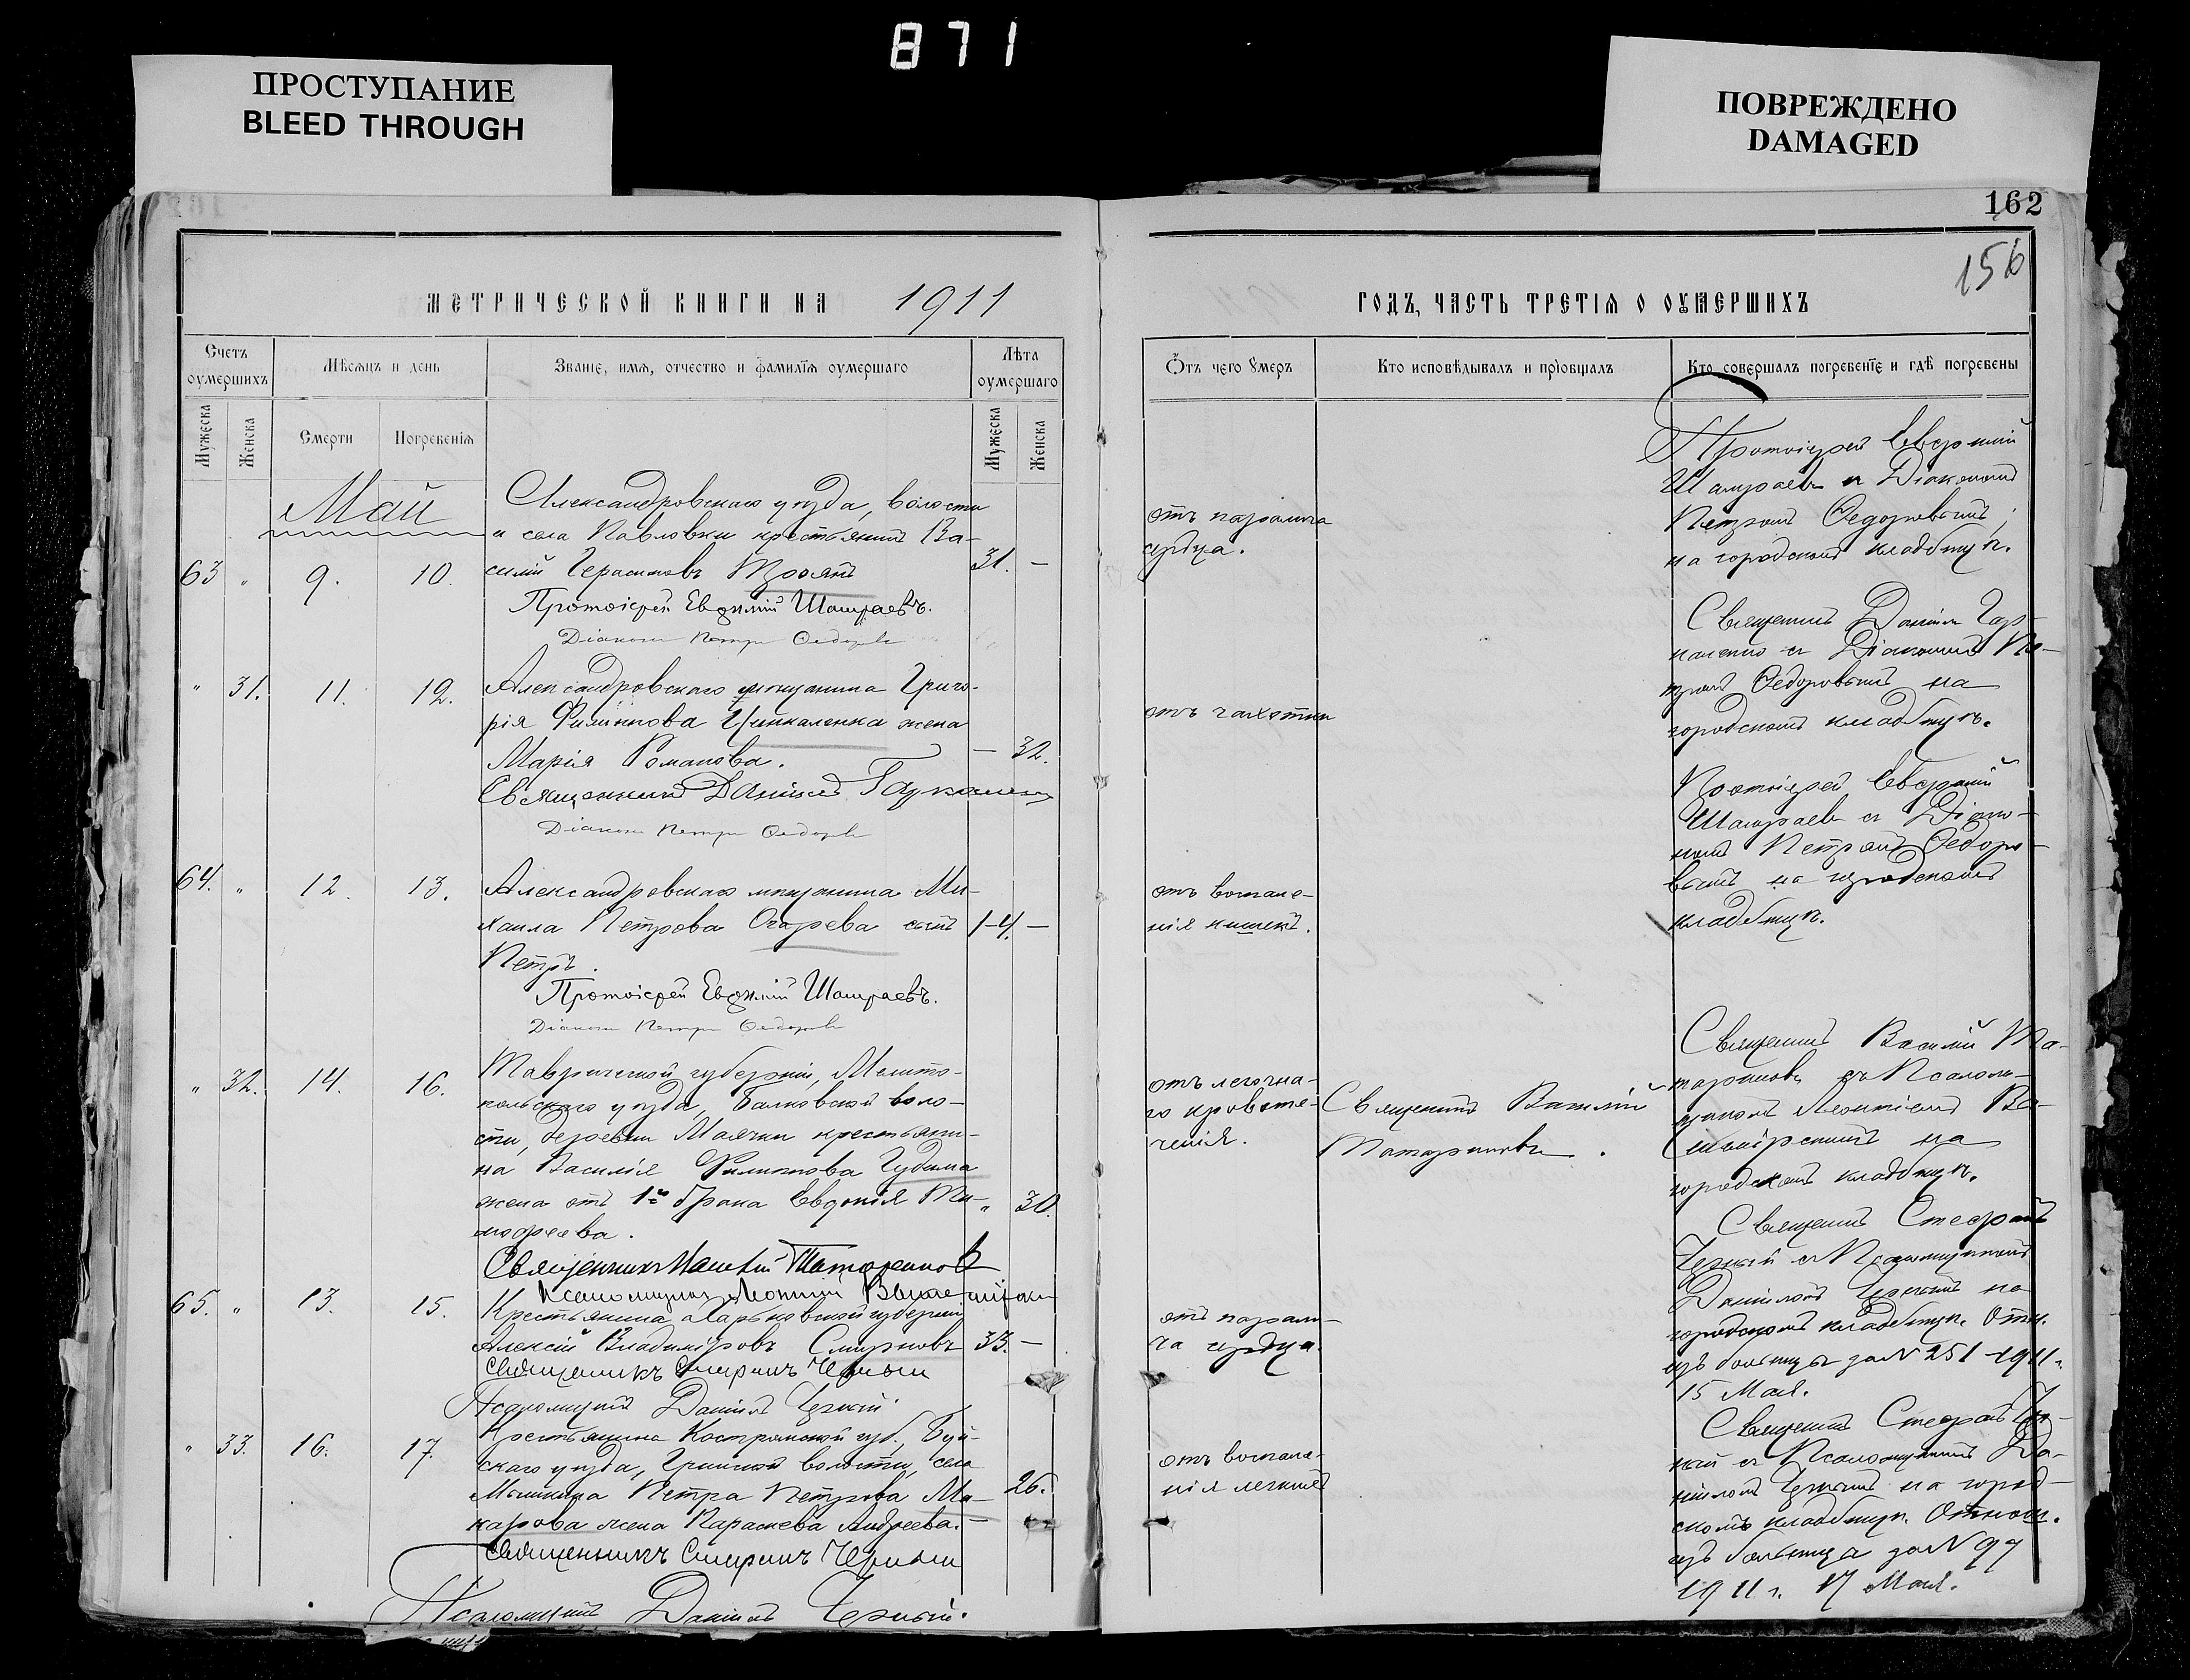 871
ПРОСТУПАНИЕ
BLEED THROUGH
ПОВРЕЖДЕНО
DAMAGED
162
156
МЕТРИЧЕСКОЙ КНИГИ НА 1911
ГОДЪ, ЧАСТЬ ТРЕТІЯ О ОУМЕРШИХЪ
Счетъ оумершихъ
Мѣсяцъ и день
Званіе, имя, отчество и фамилія оумершаго
Лѣта оумершаго
Отъ чего Умеръ
Кто исповѣдывалъ и пріобщалъ
Кто совершалъ погребеніе и гдѣ погребены
Мужеска
Женска
Смерти
Погребенія
Мужеска
Женска
Май
63 " 9. 10.
Александровскаго уѣзда, волости
и села Павловки крестьянинъ Ва-
силій Герасимовъ Троянъ
31. —
Протоіерей Евѳимій Шамраевъ.
Діаконъ Петръ Ѳедоровъ
отъ паралича
сердца.
Протоіерей Евѳимій
Шамраевъ съ Діакономъ
Петромъ Ѳедоровымъ;
на городскомъ кладбищѣ.
" 31. 11. 12.
Александровскаго мѣщанина Григо-
рія Филиппова Цинкаленка жена
Марія Романова.
— 32.
Священникъ Даніилъ
Діаконъ Петръ Ѳедоровъ
отъ чахотки
Священникъ Даніилъ Гар-
каленко съ Діакономъ Пе-
тромъ Ѳедоровымъ на
городскомъ кладбищѣ.
64. " 12. 13.
Александровскаго мѣщанина Ми-
хаила Петрова Огарева сынъ
Петръ.
1-4. —
Протоіерей Евѳимій Шамраевъ.
Діаконъ Петръ Ѳедоровъ
отъ воспале-
нія кишекъ.
Протоіерей Евѳимій
Шамраевъ съ Діако-
номъ Петромъ Ѳедоро-
вымъ на городскомъ
кладбищѣ.
" 32. 14. 16.
Таврической губерніи, Мелито-
польскаго уѣзда, Балковской воло-
сти, деревни Маячки крестьяни-
на Василія Филиппова Гудима
жена отъ 1го брака Евдокія Ти-
моѳеева.
" 30.
Священникъ Василій Татариновъ
Псаломщикъ Леонтій
отъ легочна-
го кровоте-
ченія.
Священникъ Василій
Татариновъ.
Священникъ Василій Та-
тариновъ съ Псалом-
щикомъ Леонтіемъ
на
городскомъ кладбищѣ.
65. " 13. 15.
Крестьянина Харьковской губерніи
Алексій Владиміровъ Смирновъ
33. —
Священникъ Стефанъ Черный
Псаломщикъ Даніилъ Черный
отъ парали-
ча сердца.
Священникъ Стефанъ
Черный съ Псаломщикомъ
Данииломъ Чернымъ на
городскомъ кладбищѣ. Отн.
изъ больницы за № 251 -1911 г.
15 Мая.
" 33. 16. 17.
Крестьянина Костромской губ., Буй-
скаго уѣзда, волости, села
Петра Петрова Ма-
карова жена Параскева Андреева.
— 26.
Священникъ Стефанъ Черный
Псаломщикъ Даніилъ Черный.
отъ воспале-
нія легкихъ
Священникъ Стефанъ Чер-
ный съ Псаломщикомъ Да-
ніиломъ Чернымъ на город-
скомъ кладбищѣ. Отнош.
изъ больницы за № 97
1911 г. 17 Мая.